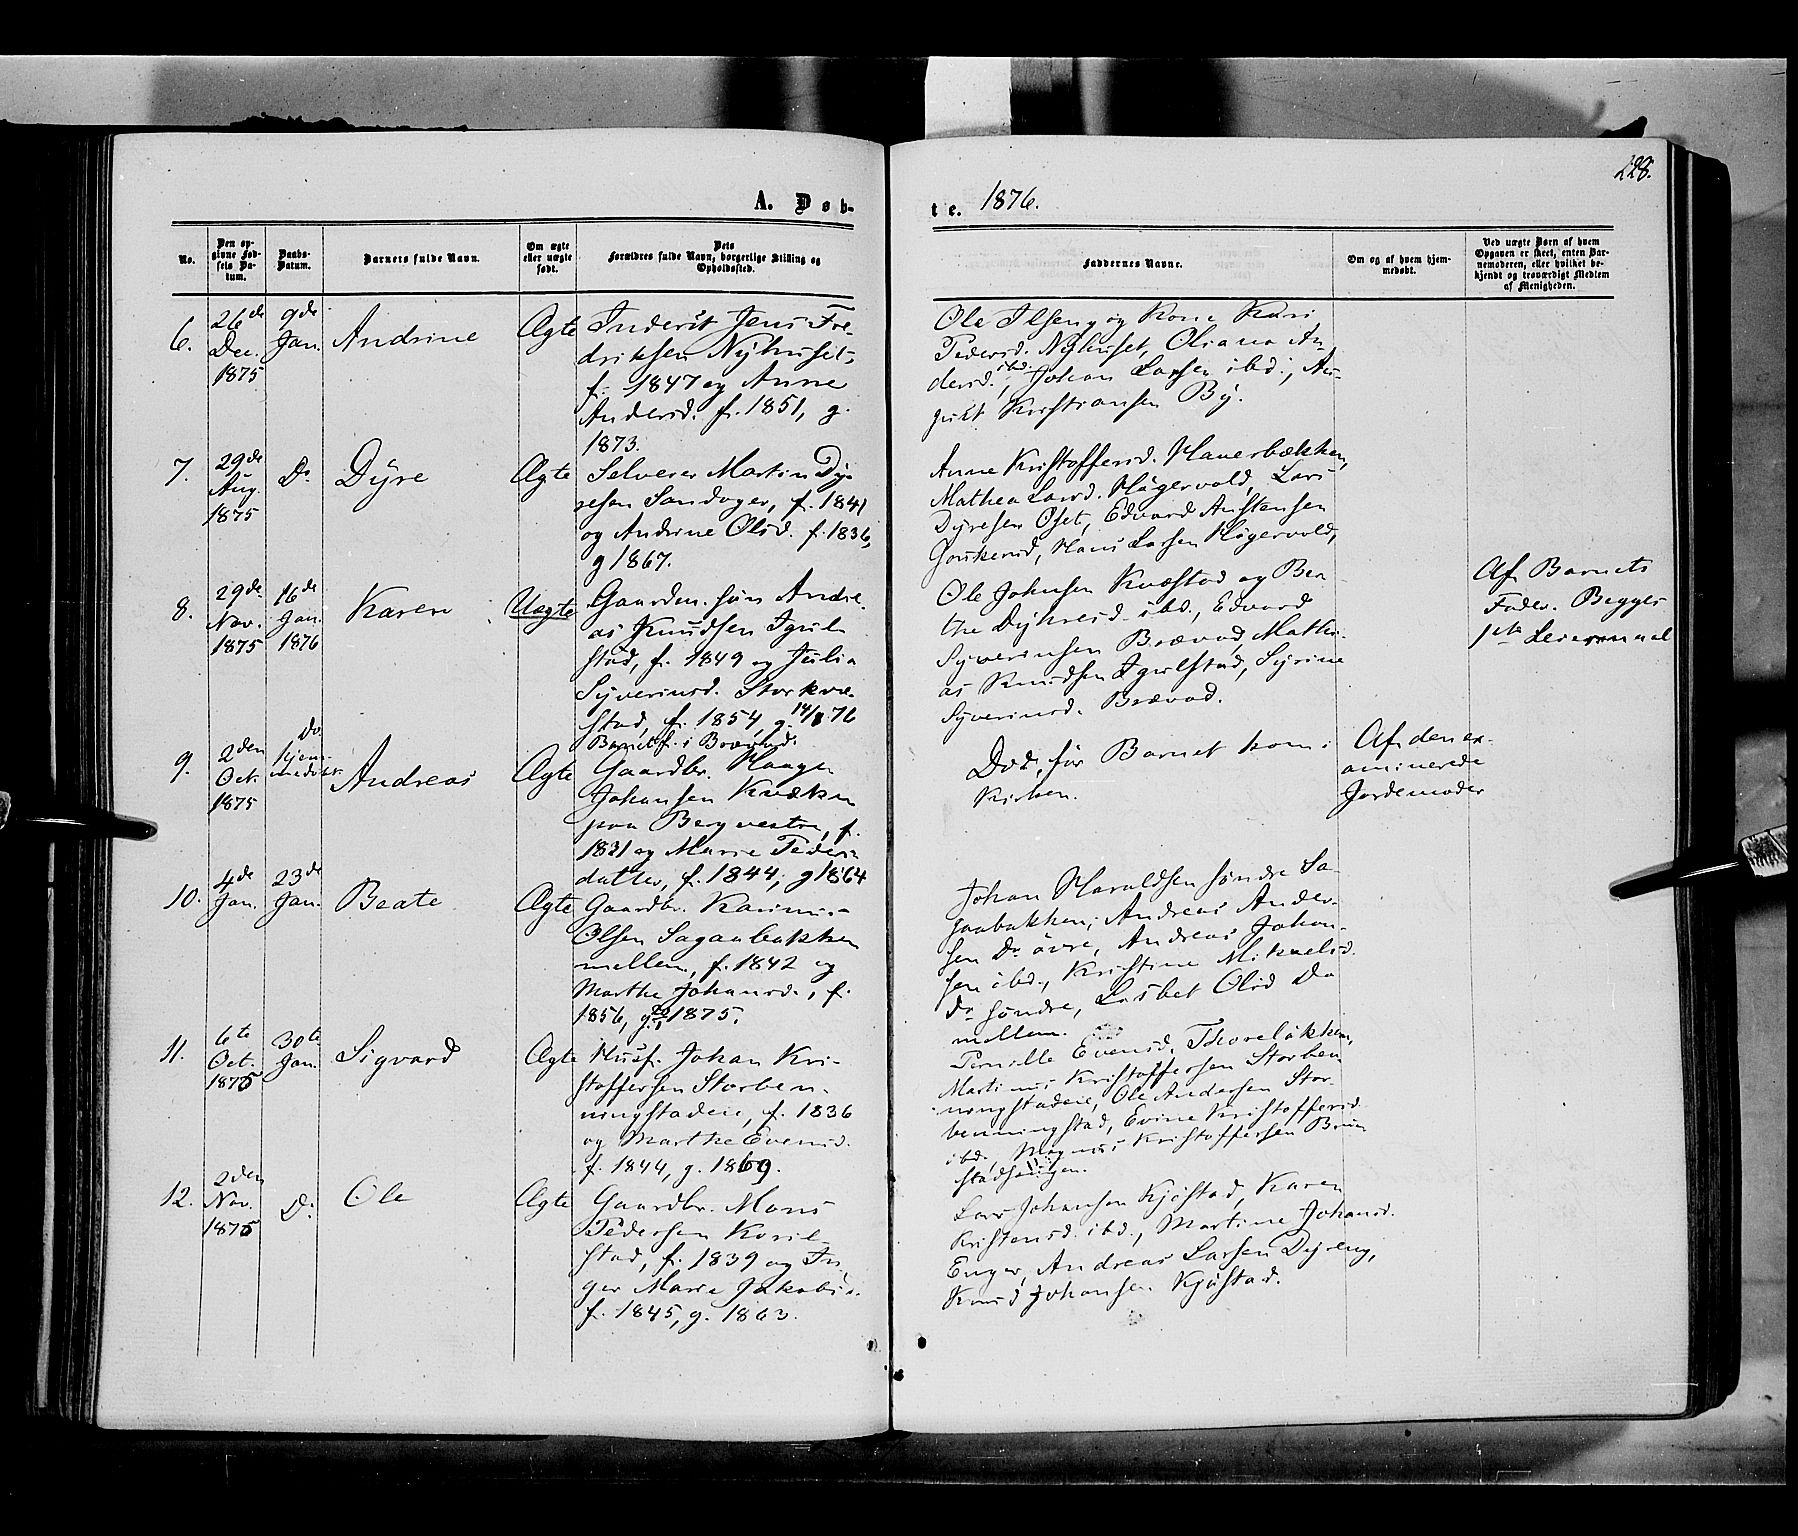 228.
A. Døb-
te. 1876.
No.
Den op-
givne Fød-
sels Da-
tum.
Daabs-
Datum.
Barnets fulde Navn.
Om ægte
eller uægte
født.
Dets
Forældres fulde Navn, borgerlige Stilling og
Opholdssted.
Faddernes Navne.
Om og af hvem hjem-
medøbt.
Ved uægte Børn af hvem
Opgaven er skeet, enten Bar-
nemoderen, eller hvilket be-
kjendt og troværdigt Medlem
af Menigheden.
6.
26de
Dec.
1875
9de
Jan.
Andrine
Ægte
Inderst Jens Fre-
driksen Nyhuset,
f. 1847 og Anne
Andersd. f. 1851, g.
1873.
Ole Ilseng og Kone Kari
Pedersd. Nyhuset, Oliana An-
dersd. ibd., Johan Larsen ibd., Au-
gust Kristiansen By.
7.
29de
Aug.
1875
Do
Dyre
Ægte
Selveier Martin Dy-
resen Sandager, f. 1841
og Andrine Olsd. f. 1836,
g 1867.
Anne Kristoffersd. Haverbækken,
Mathea Larsd. Hagervold, Lars
Dyresen Oset, Edvard Austensen
Hans Larsen Hagervold,
8.
29de
Nov.
1875
16de
Jan.
1876
Karen
Uægte
Gaardm. søn Andre-
as Knudsen Igel-
stad, f. 1849 og Julia
Syverinsd. Storkvæ-
stad, f. 1854, g. 14/8 76
Barnet f. i Brævad.
Ole Johnsen Kvæstad og Bea-
the Dyhresd. ibd., Edvard
Syverinsen Brævad, Mathi-
as Knudsen Igelstad, Syrine
Syverinsd. Brævad.
Af Barnets
Fader. Begges
1ste Leiermaal
9.
2den
Oct.
1875
Do
hjem-
medøbt.
Andreas
Ægte
Gaardbr. Haagen
Johansen Kvæken
paa Berg vestre, f.
1831 og Marie Peders-
datter, f. 1844, g 1864
Død, før Barnet kom i
Kirken.
Af den ex-
aminerede
Jordemoder
10.
4de
Jan.
23de
Jan.
Beate
Ægte
Gaardbr. Karinus
Olsen Sagaabakken
mellem, f. 1842 og
Marthe Johansd., f.
1856, g. 1875.
Johan Haraldsen søndre Sa-
gaabakken, Andreas Ander-
sen Do øvre, Andreas Johan-
sen ibd., Kristine Mikkelsd.
Do søndre, Lisbet Olsd Do
mellem.
11.
6te
Oct.
1875
30te
Jan.
Sigvard
Ægte
Husf. Johan Kri-
stoffersen Storben-
ningstadeie, f. 1836
og Marthe Evensd.
f. 1844, g. 1869.
Pernille Evensd. Thoreløkken,
Martinus Kristoffersen Storben-
ningstadeie, Ole Andersen Stor-
benningstad, Evine Kristoffersd.
ibd., Magnus Kristoffersen Brun-
stadhaugen.
12.
2den
Nov.
1875
Do
Ole
Ægte
Gaardbr. Mons
Pedersen Koril-
stad, f. 1839 og In-
ger Marie Jakobsd.
f. 1845, g. 1863.
Lars Johansen Kjøstad, Karen
Kristensd. ibd., Martine Johansd.
Enger, Andreas Larsen Dyreng,
Knud Johansen Kjøstad.